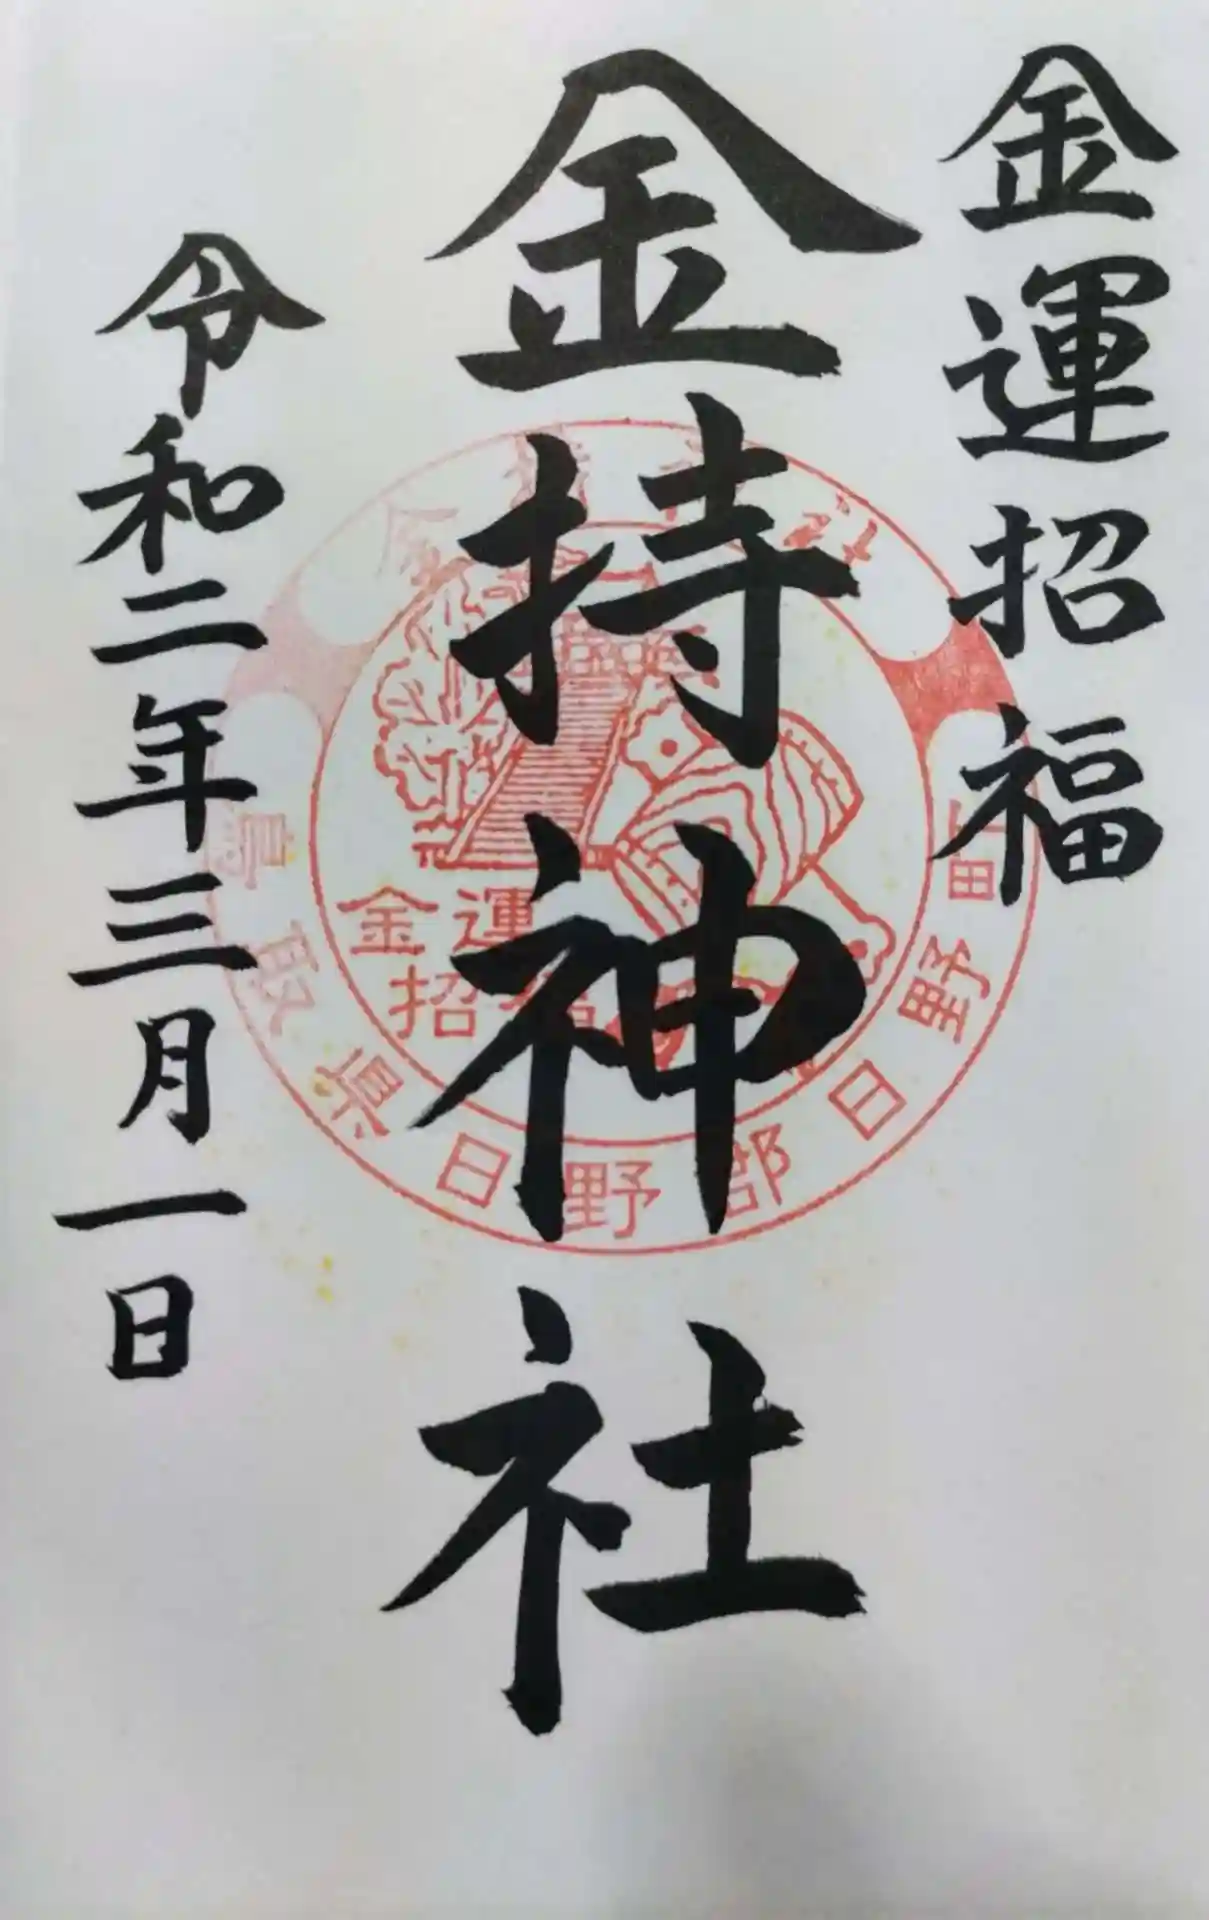 金運招福
金持神社
令和二年三月一日
金持神社
金運
招福
鳥取県日野郡日野町